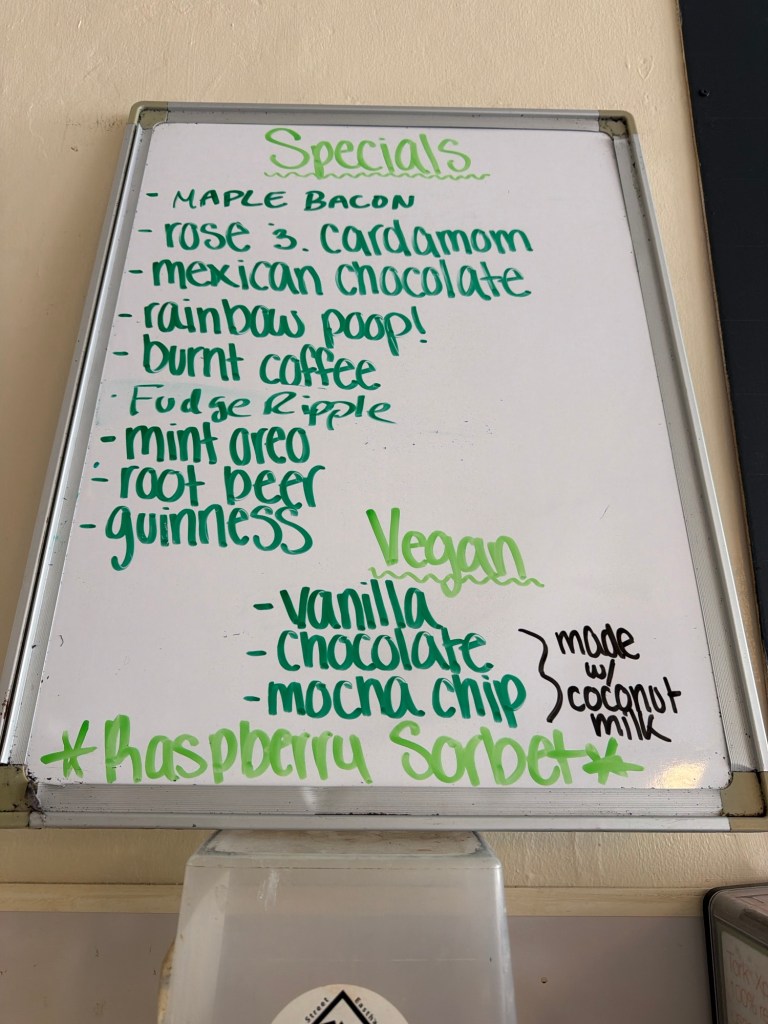 Specials
- MAPLE BACON
- rose & cardamom
- mexican chocolate
- rainbow poop!
- burnt coffee
- Fudge Ripple
- mint oreo
- root beer
- guinness
Vegan
- vanilla
- chocolate
- mocha chip
made
w/
coconut
milk
*Raspberry Sorbet*
Street